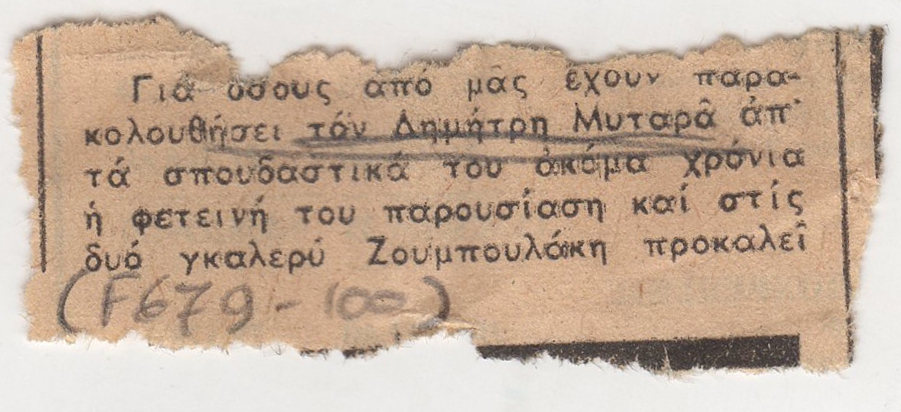 Γιά ὅσους ἀπό μᾶς ἔχουν παρα-
κολουθήσει τόν Δημήτρη Μυταρᾶ ἀπ'
τά σπουδαστικά του ἀκόμα χρόνια
ἡ φετεινή του παρουσίαση καί στίς
δυό γκαλερύ Ζουμπουλάκη προκαλεῖ
(F679-100)